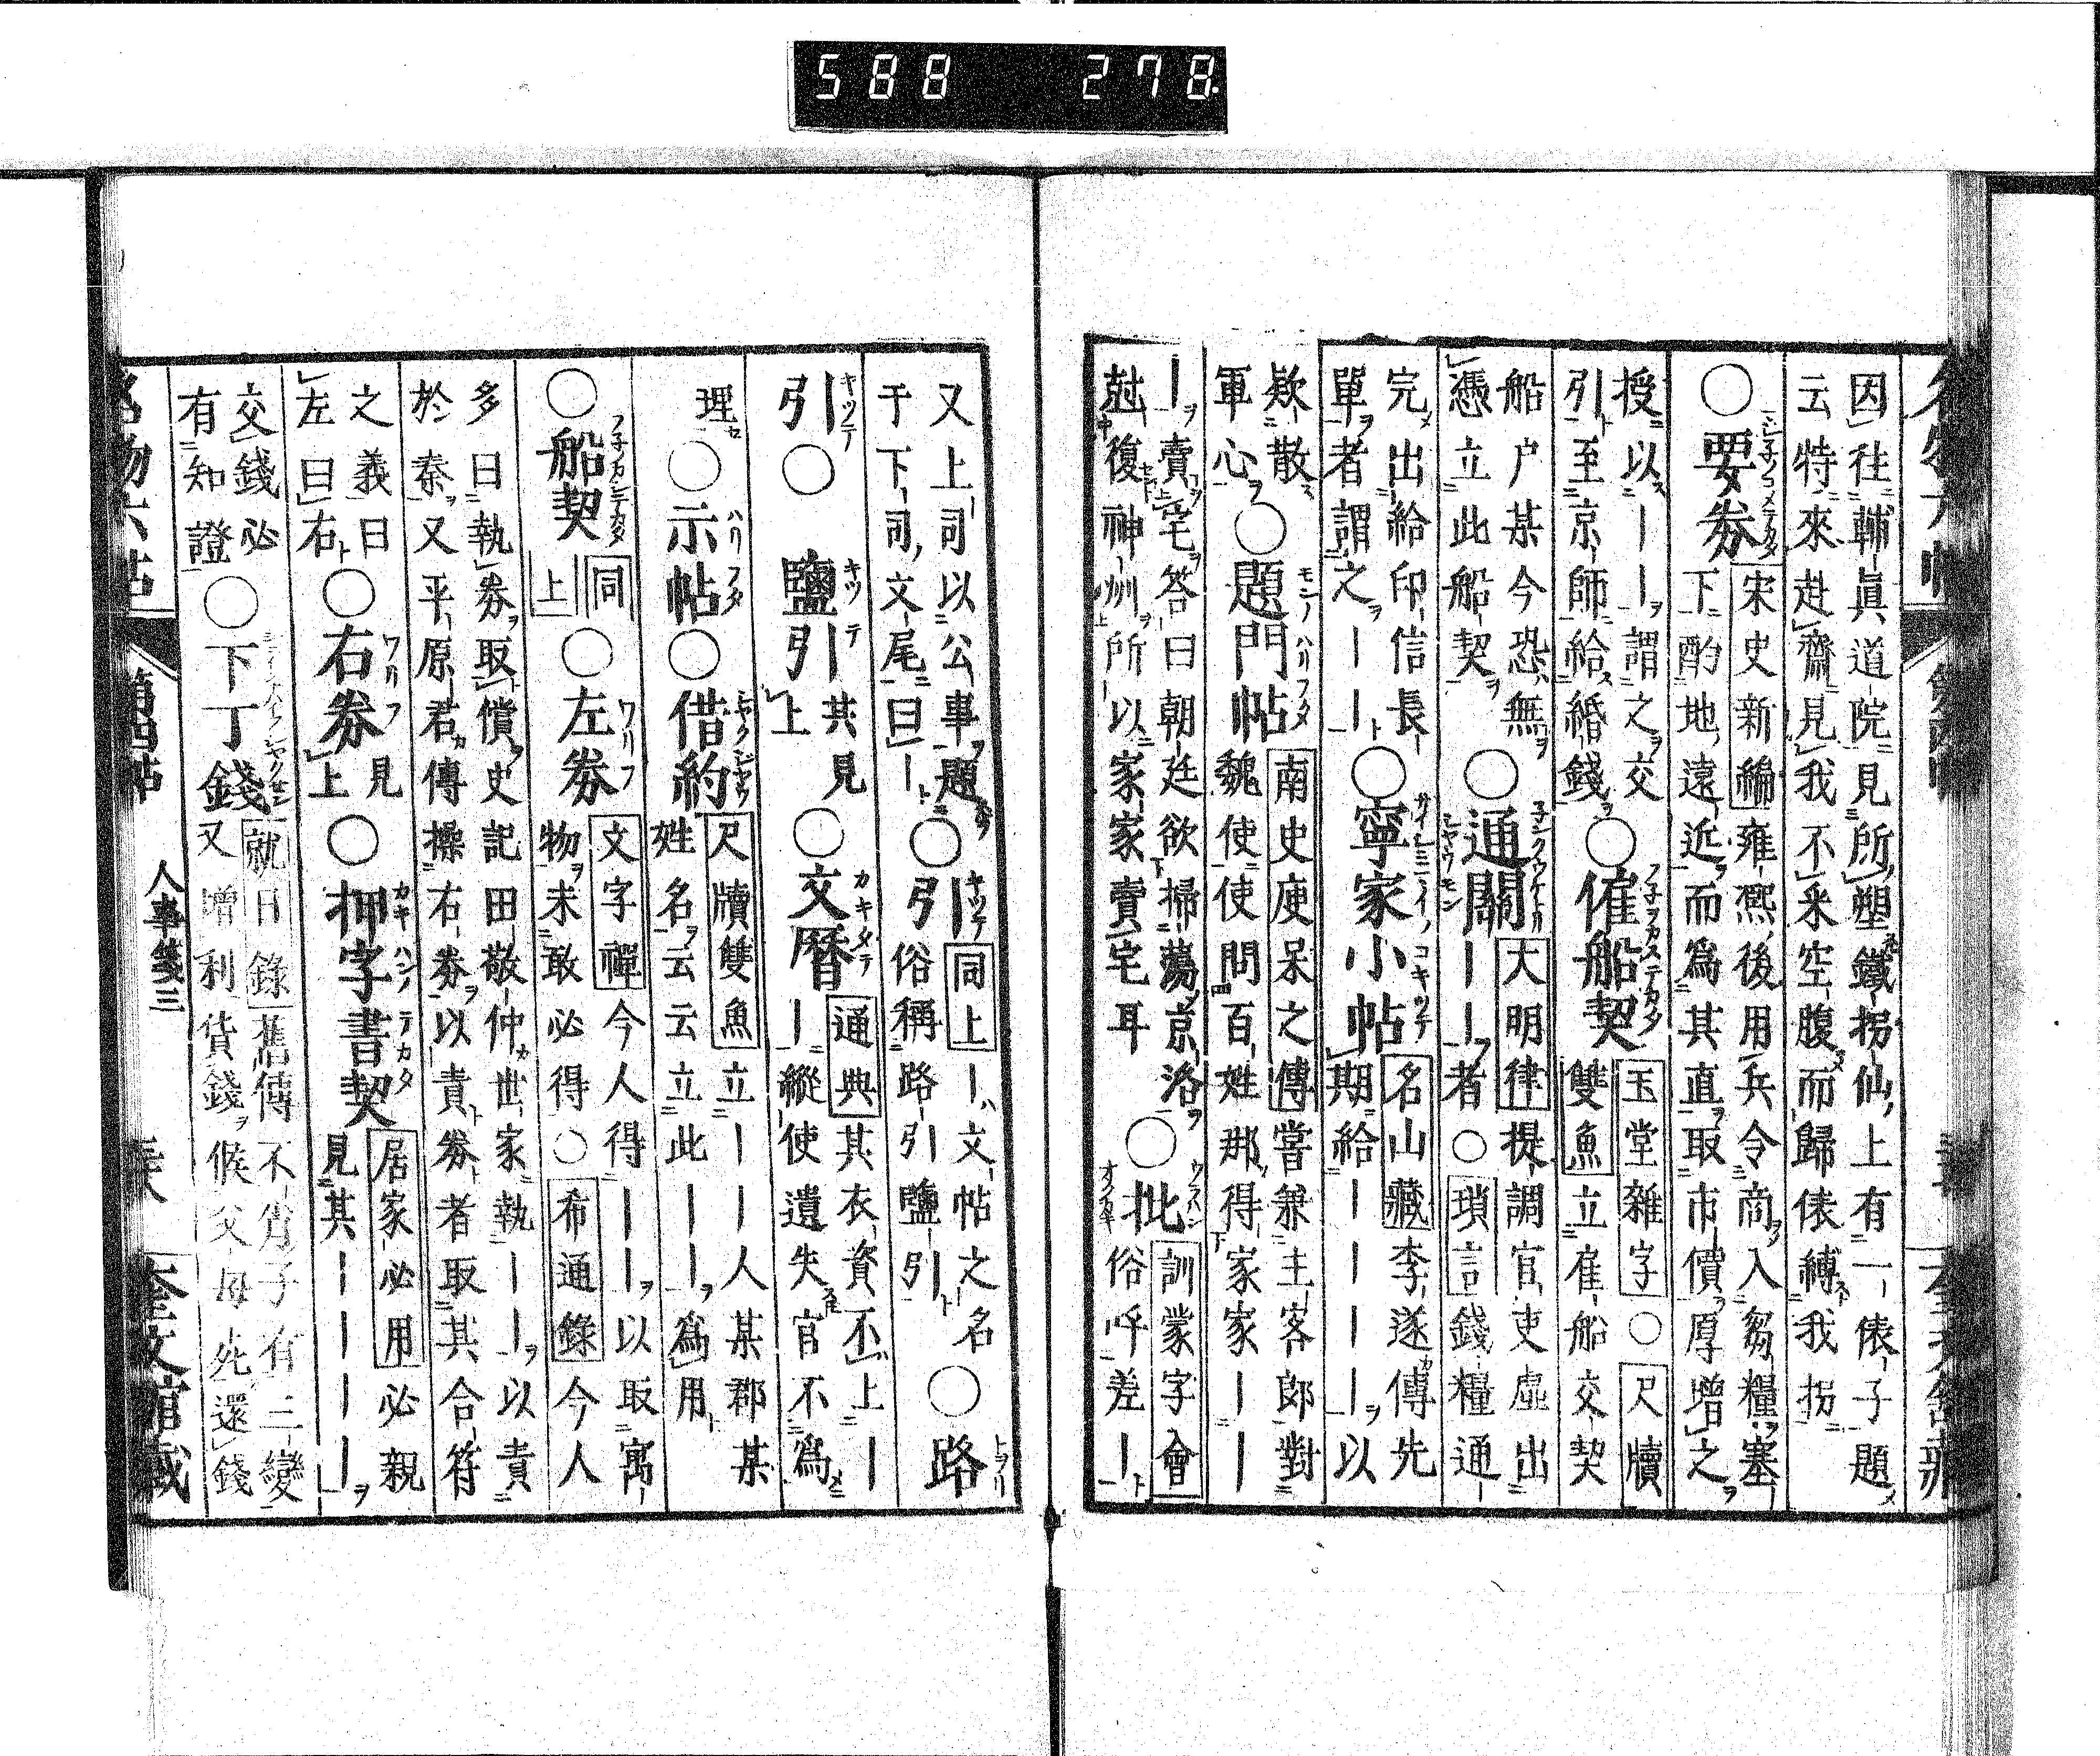 588 278
因往輔眞道院見所塑鐵拐仙上有一俵子題
云特來赴齋見我不采空腹而歸俵縛我拐
○要劵
宋史新編雍熙後用兵令商入芻糧塞
下酌地遠近而爲其直取市價厚增之
授以｜｜謂之交
引至京師給緡錢
○僱船契
玉堂雜字○尺牘
雙魚立雇船交契
船户某今恐無
憑立此船契
○通關
大明律提調官吏虚出
｜｜者○瑣言錢糧通
完出給印信長
單者謂之｜｜
○寧家小帖
名山藏李遂傳先
期給｜｜｜｜以
欵散
軍心
○題門帖
南史庾杲之傳嘗兼主客郎對
魏使使問百姓那得家家｜｜
｜賣宅答曰朝廷欲掃蕩京洛
尅復神州所以家家賣宅耳
○批
訓蒙字會
俗呼差｜
又上司以公事題
于下司文尾曰｜
○引｜
同上｜文帖之名
俗稱路引鹽引
○路
引｜
○鹽引｜
其見
上
○文曆
通典其衣資不上｜
｜縱使遺失官不爲
理
○示帖○借約
尺牘雙魚立｜｜人某郡某
姓名云云立此｜｜爲用
○船契
同
上
○左劵
文字禪今人得｜｜以取寓
物未敢必得○希通錄今人
多曰執劵取償史記田敬仲世家執｜｜以責
於秦又平原君傳操右劵以責劵者取其合符
之義曰
左曰右
○右劵
見
上
○押字書契
居家必用必親
見其｜｜｜｜
交錢必
有知證
○下丁錢
就日錄舊傳不肖子有三變
又增利貨錢候父母死還錢
名物六帖 第四帖 人事箋三 奎文館藏